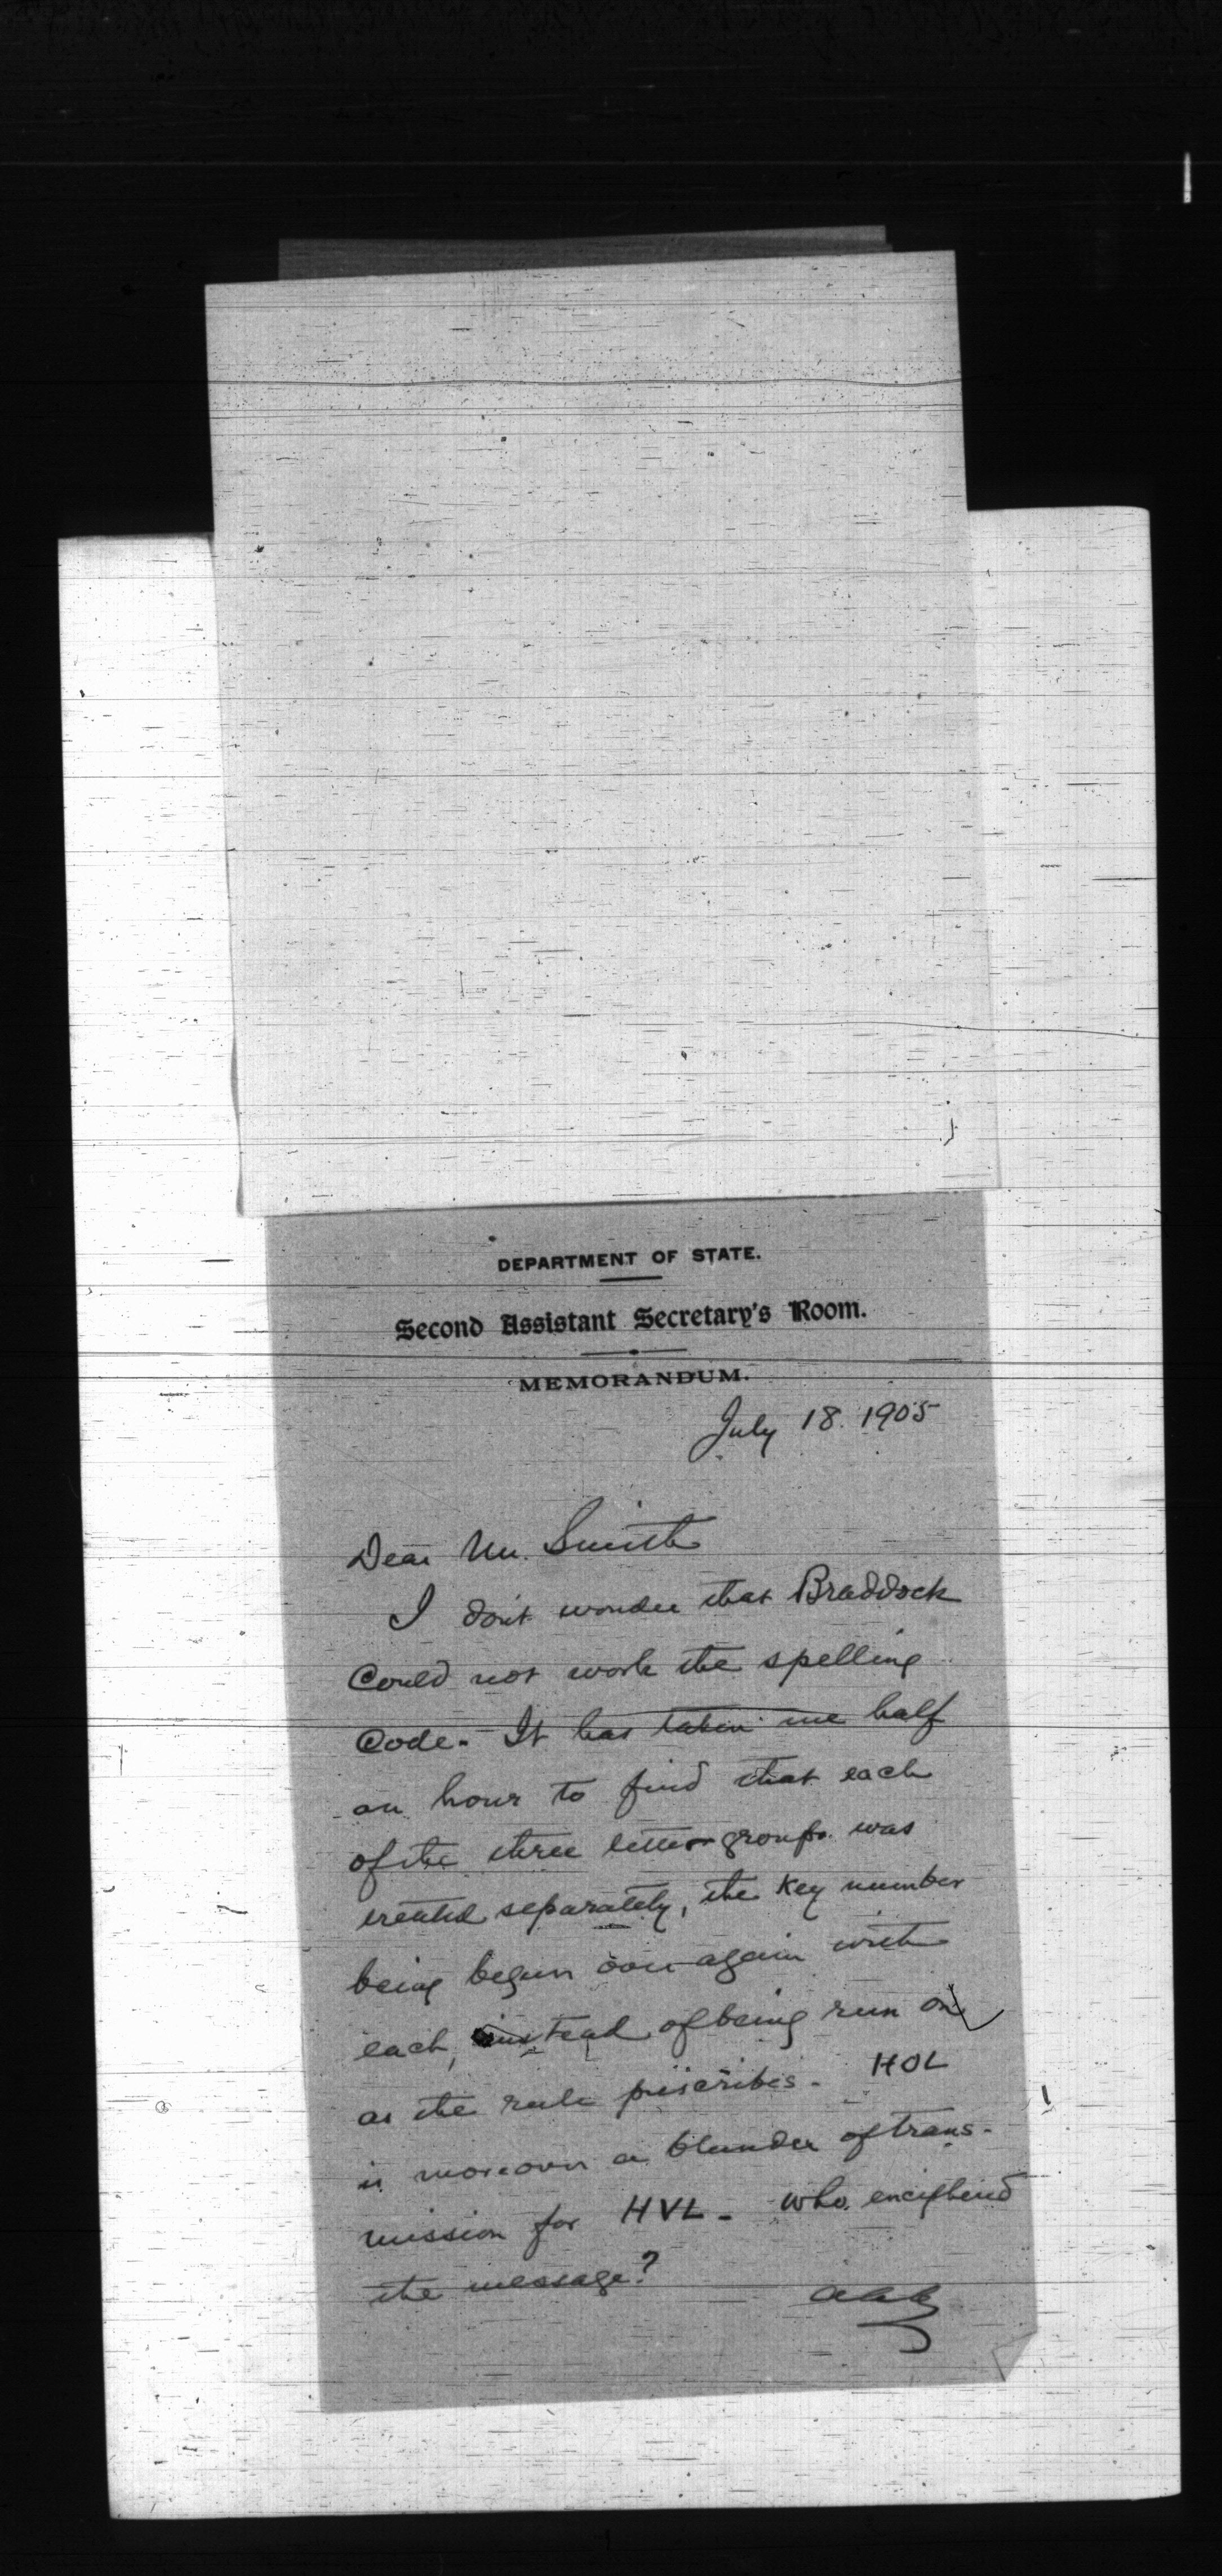 DEPARTMENT OF STATE.
Second Assistant Secretary's Room.
MEMORANDUM.
July 18. 1905
Dear Mr. Smith
I don't wonder that Braddock
could not work the spelling
Code. It has taken me half
an hour to find that each
of the three letter groups was
treated separately, the key number
being begun over again with
each, instead of being run on
as the rule prescribes. HOL
is moreover a blunder of trans-
mission for HVL. Who enciphered
the message?